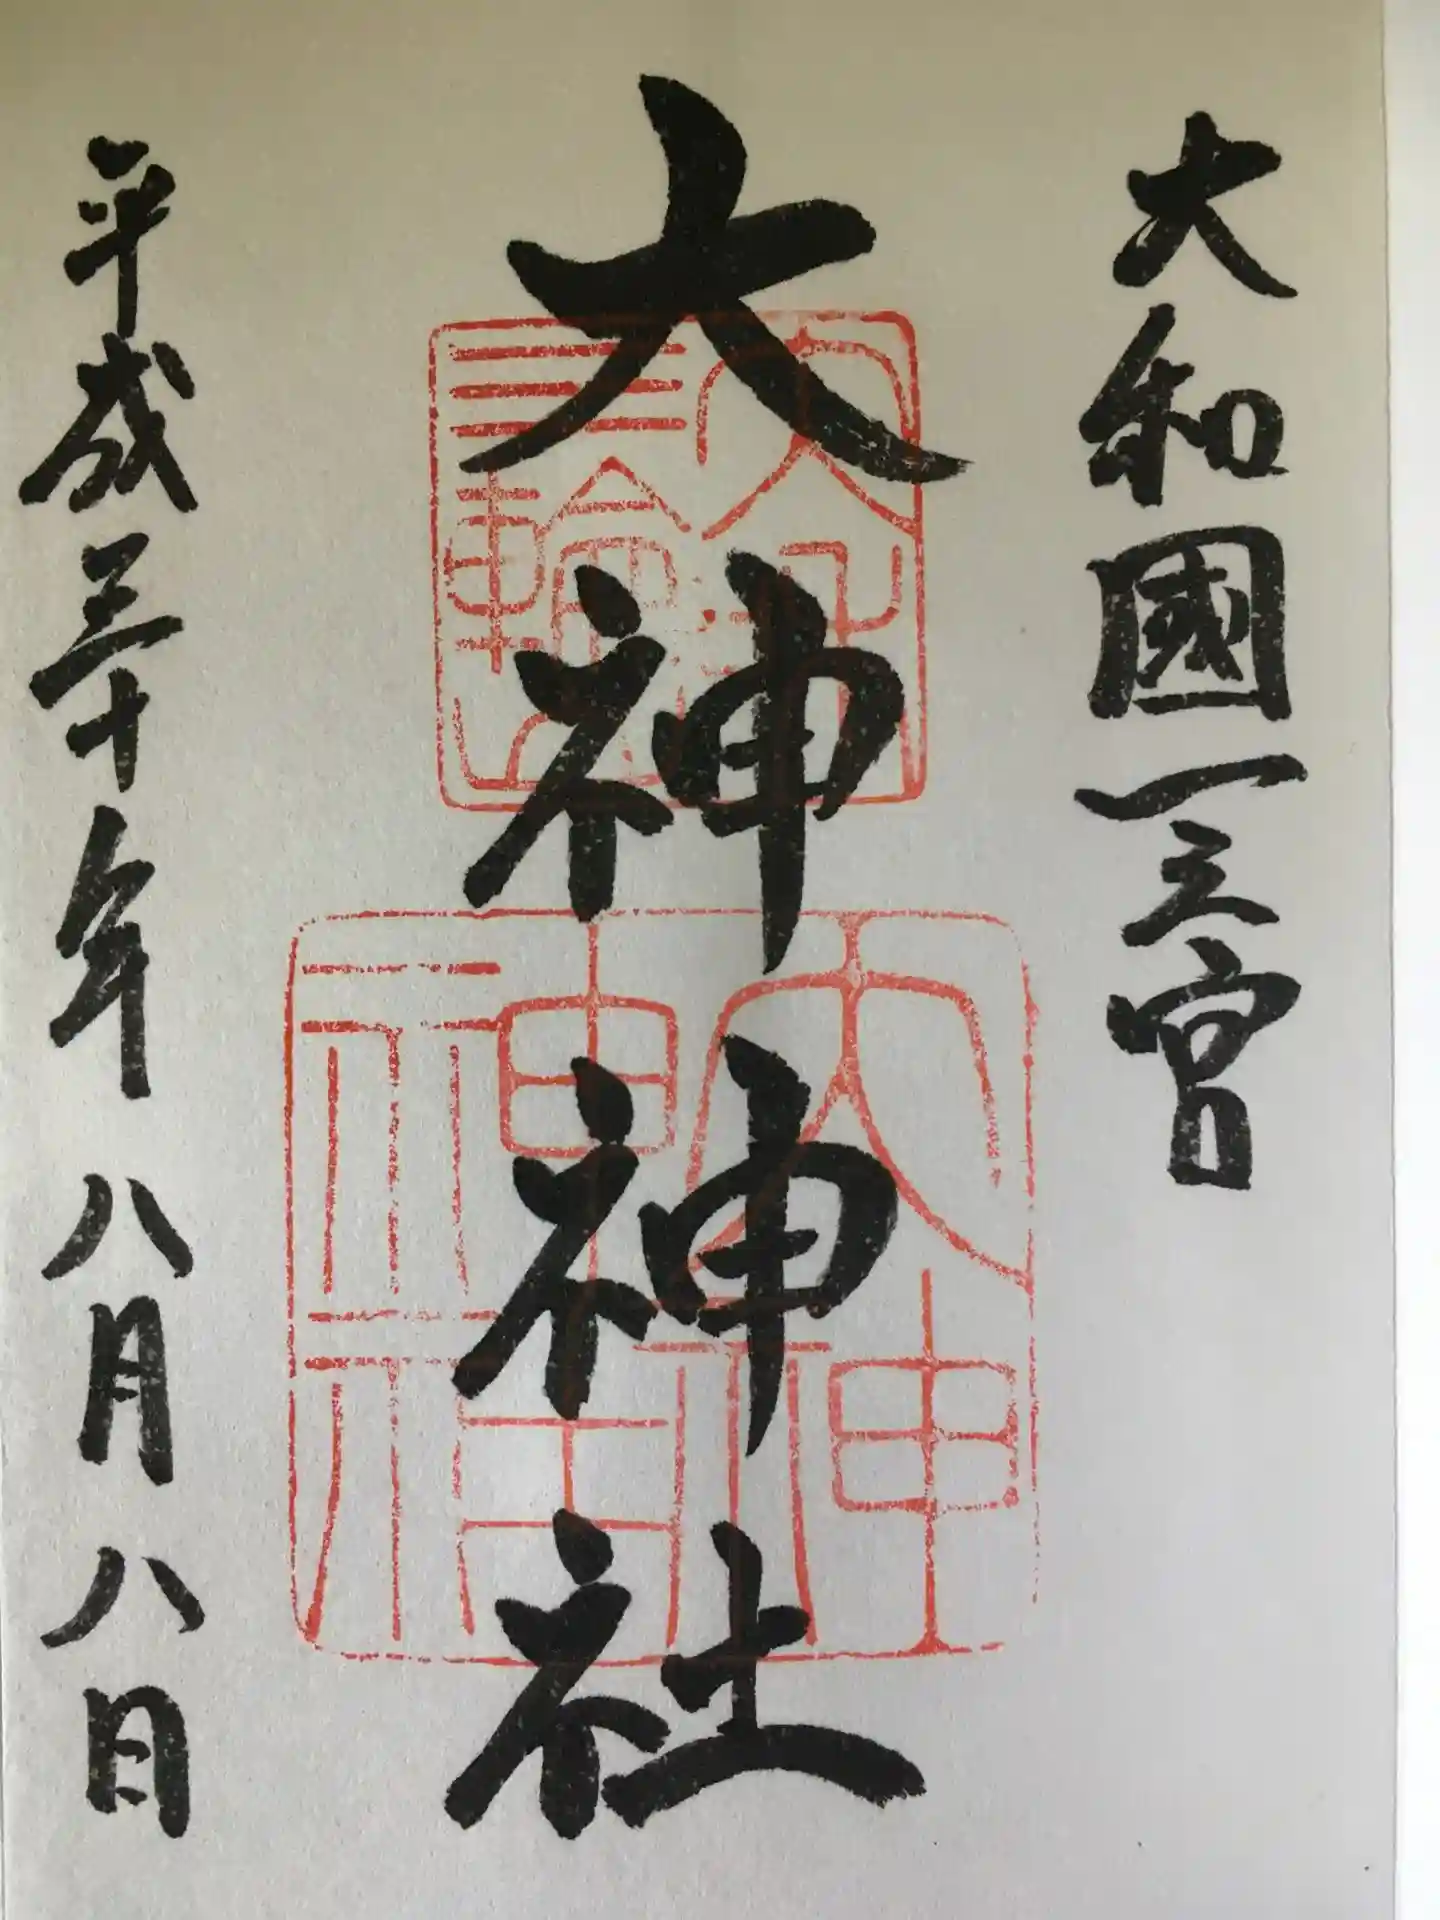 大和國一之宮
大神神社
平成三十年八月八日
大神
神社